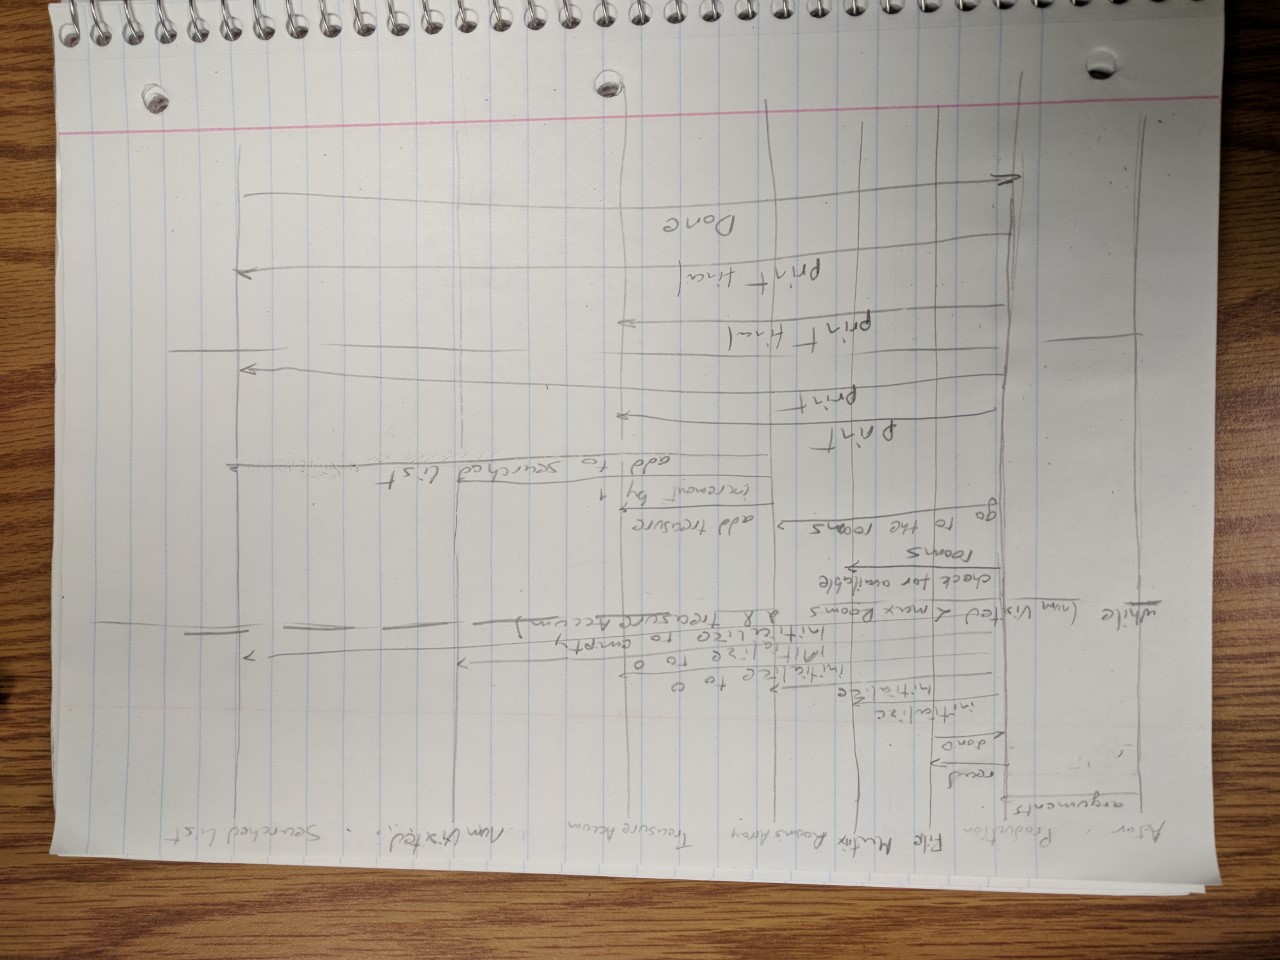 Actor Production File Matrix Rooms Array Treasure Accum num Visited Searched List
arguments
read
done
initialize
initialize
initialize to 0
initialize to 0
initialize to empty
while (num Visited < max Rooms && treasure Accum)
check for available
rooms
go to the rooms
add treasure
increment by 1
add to searched list
print
print
print final
print final
Done